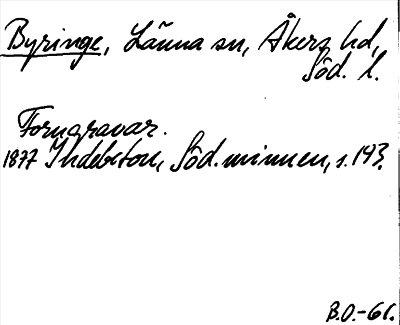 Byringe, Länna sn, Åkers hd,
Söd. l.
Forngravar.
1877 Indebetou, Söd. minnen, s. 143.
B.O.-61.